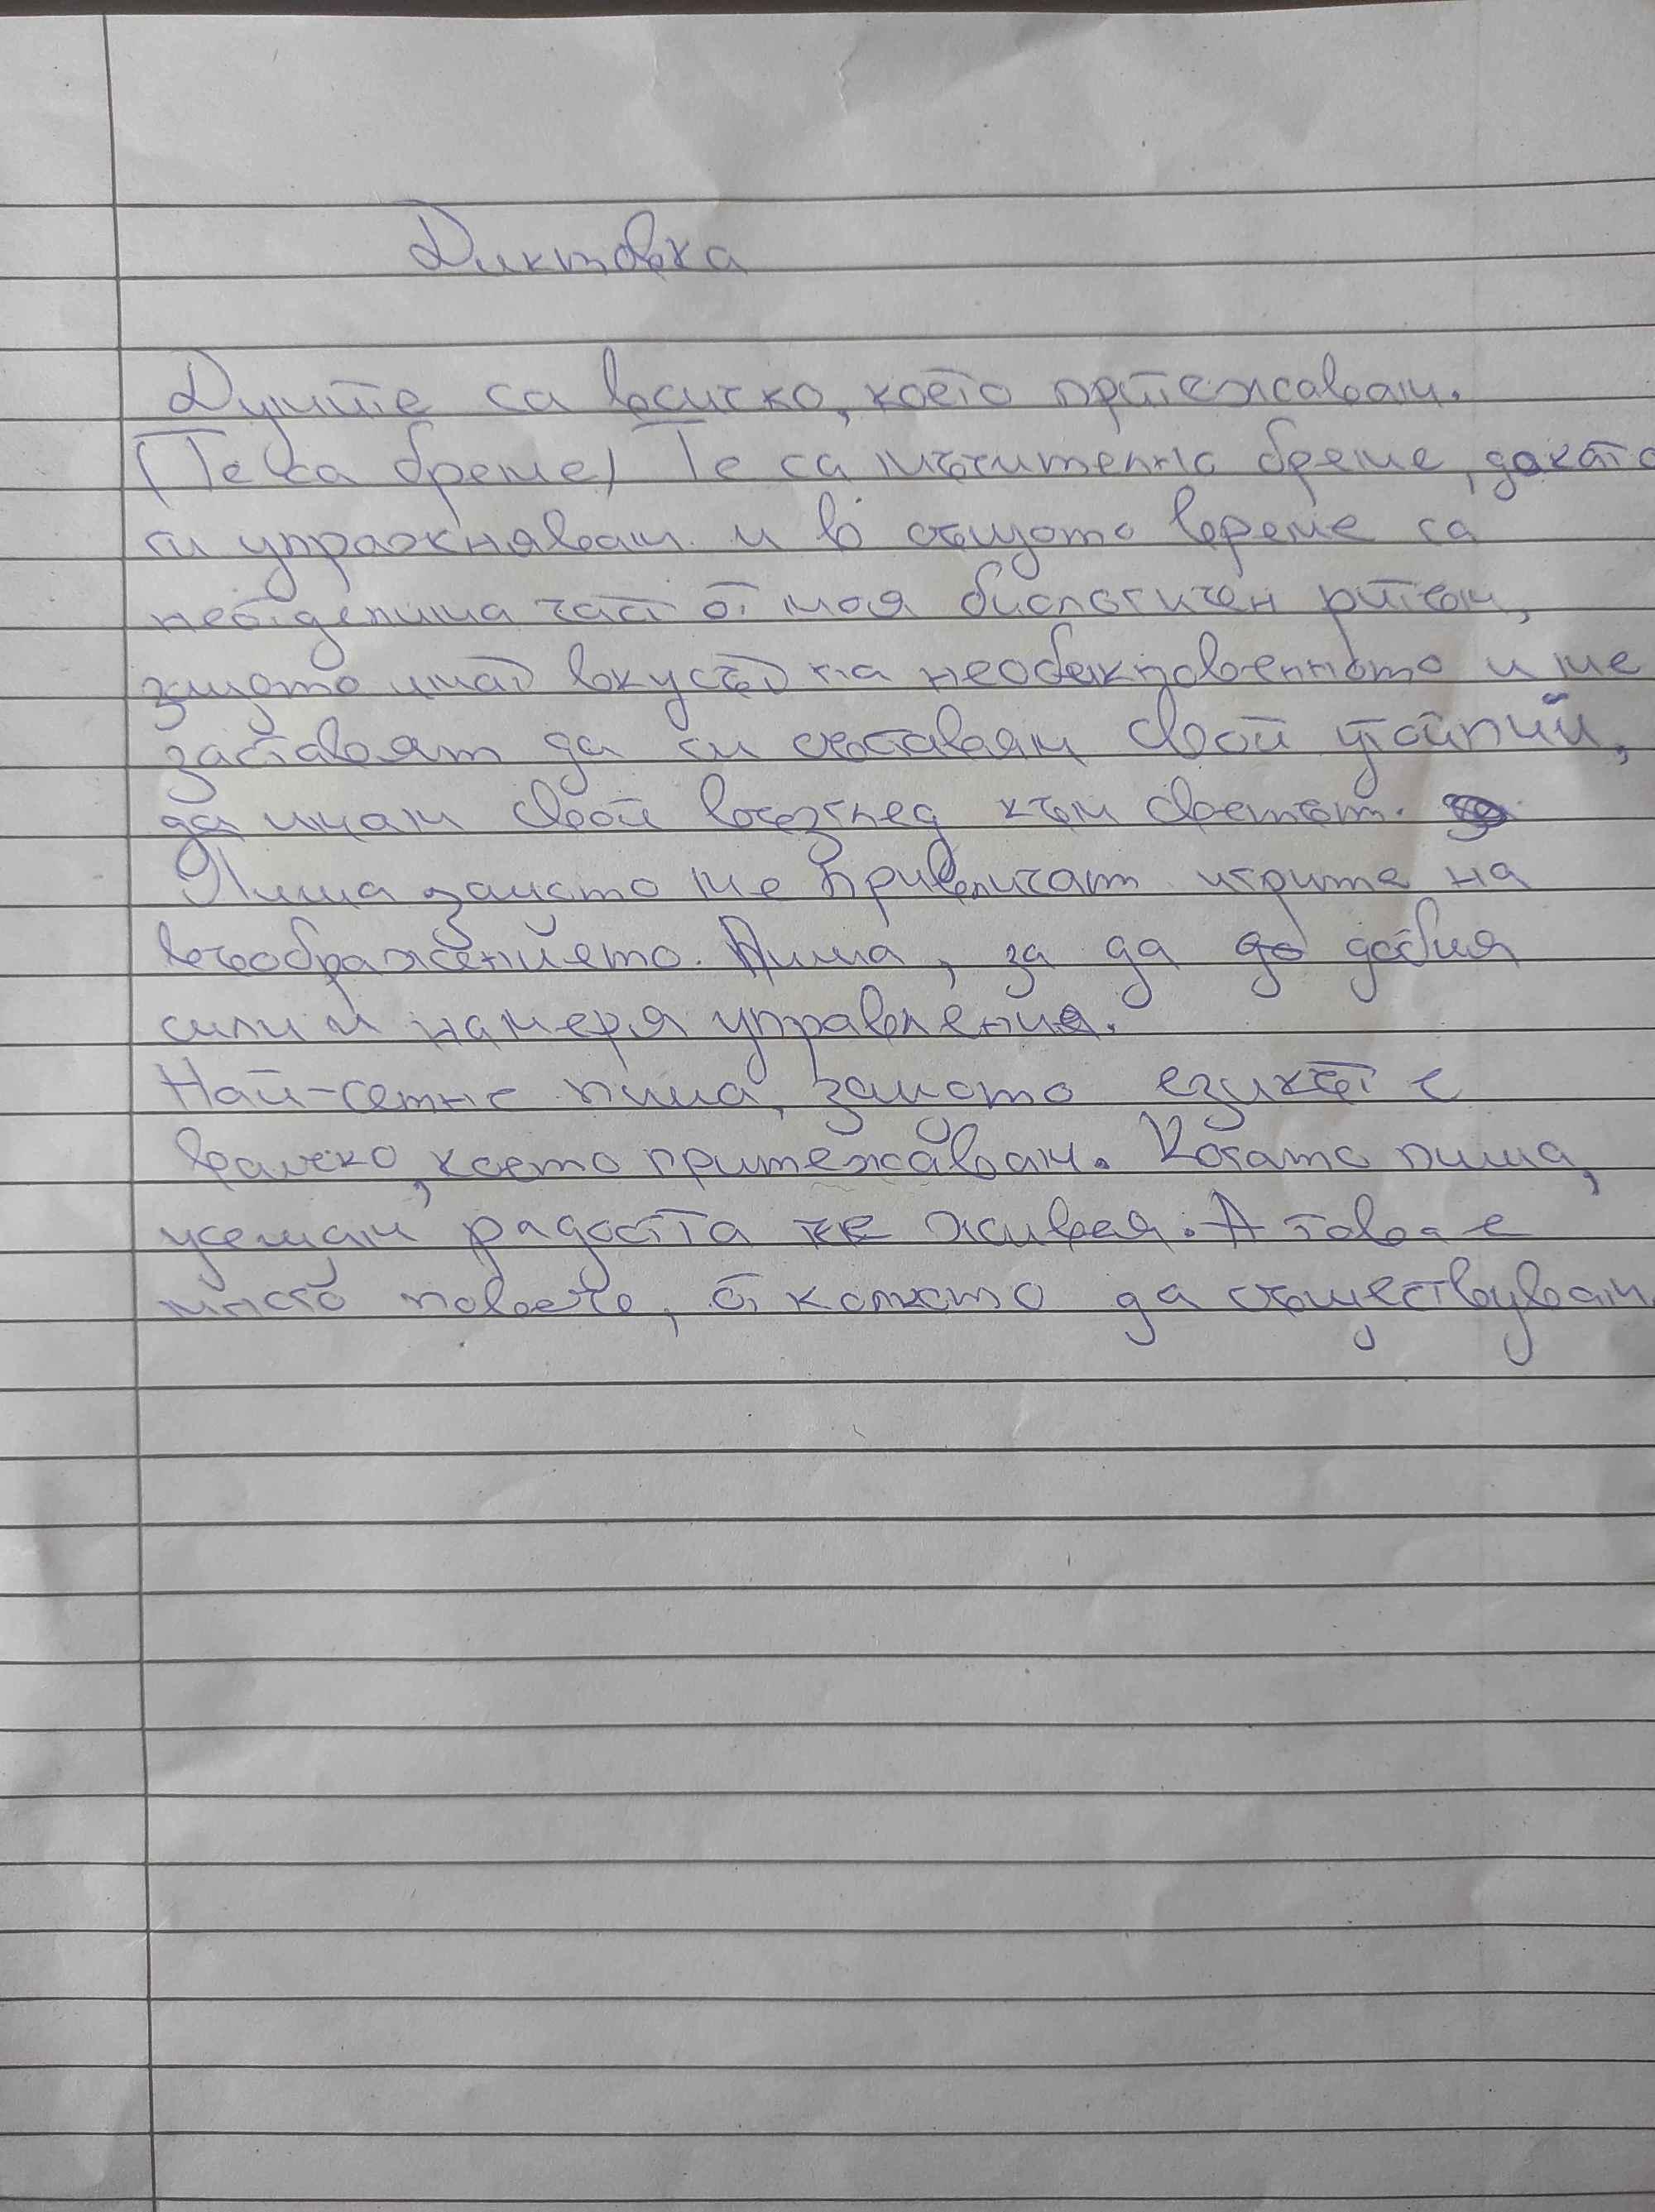 Диктовка
Думите са всичко, което притежавам.
(Те са бреме) Те са мъчително бреме, докато
ги упражнявам и в същото време са
неотделима част от моя биологичен ритъм,
защото имат вкусът на необекновенното и ме
заставят да си съставям свой утойпий,
да имам свой възглед към светът.
Пиша защото ме привличат игрите на
въображенийето. Пиша, за да до добия
сили и намеря управления.
Най-сетне пиша, защото езикът е
всичко, което притежавам. Когато пиша,
усещам радостта че живея. А това е
много повече, от колкото да съществувам.